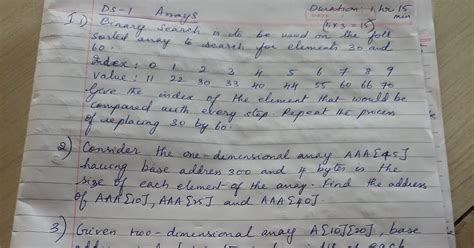 DS-1 Arrays Duration: 1 hr 15 min
(5x3=15)
I 1) Binary search is to be used on the foll
sorted array to search for elements 30 and
60.
Index: 0 1 2 3 4 5 6 7 8 9
Value: 11 22 30 33 40 44 55 60 66 70
Give the index of the element that would be
compared with every step. Repeat the process
of replacing 30 by 60.
2) Consider the one-dimensional array AAA[45]
having base address 300 and 4 bytes is the
size of each element of the array. Find the address
of AAA[10], AAA[35] and AAA[40].
3) Given two-dimensional array A[10][20], base